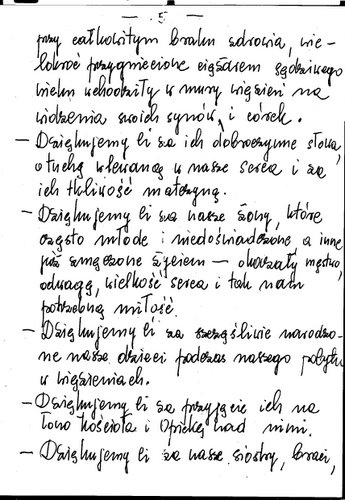 — 5 —
przy całkowitym braku zdrowia, wie-
lokroć przygniecione ciężarem sędziwego
wieku wchodziły w mury więzień na
widzenia swoich synów i córek.
— Dziękujemy Ci za ich dobroczynne słowa,
otuchę wlewaną w nasze serca i za
ich tkliwość matczyną.
— Dziękujemy Ci za nasze żony, które
często młode i niedoświadczone a inne
już zmęczone życiem — okazały męstwo,
odwagę, wielkość serca i tak nam
potrzebną miłość.
— Dziękujemy Ci za szczęśliwie narodzo-
ne nasze dzieci podczas naszego pobytu
w więzieniach.
— Dziękujemy Ci za przyjęcie ich na
łono Kościoła i Opiekę nad nimi.
— Dziękujemy Ci za nasze siostry, braci,